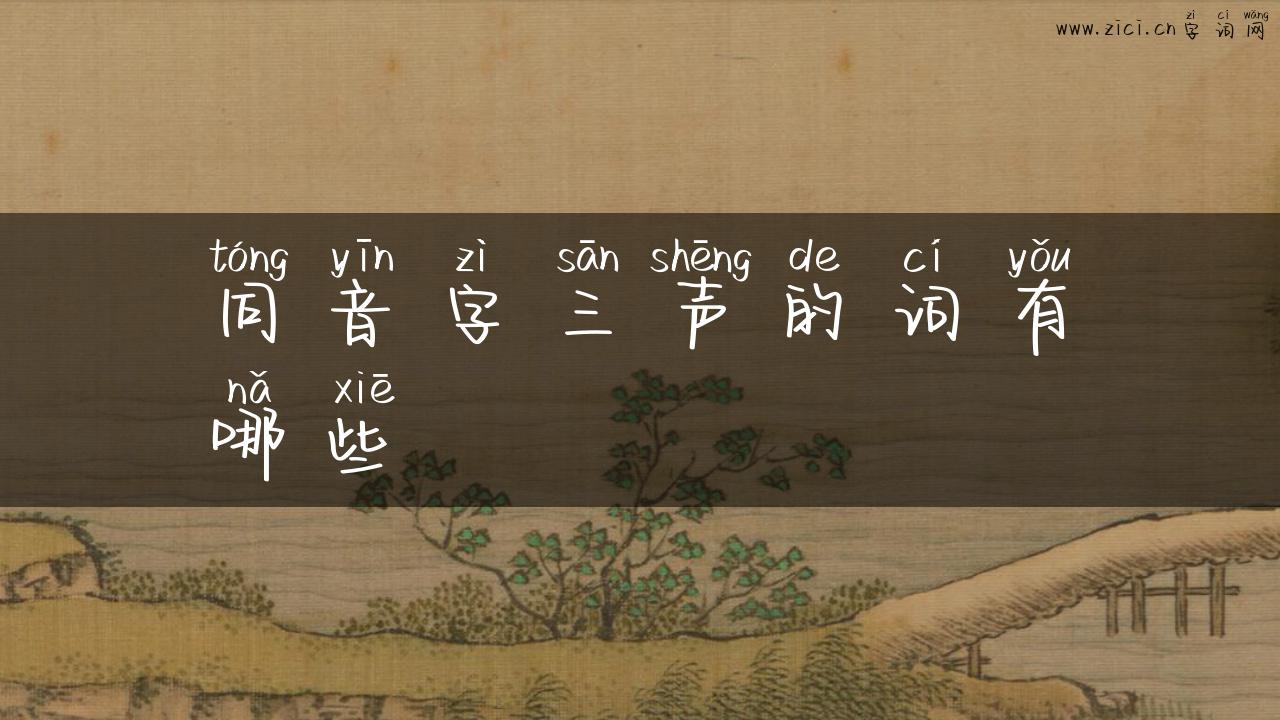 zì cí wǎng
www.zici.cn 字词网
tóng yīn zì sān shēng de cí yǒu
同音字三声的词有
nǎ xiē
哪些